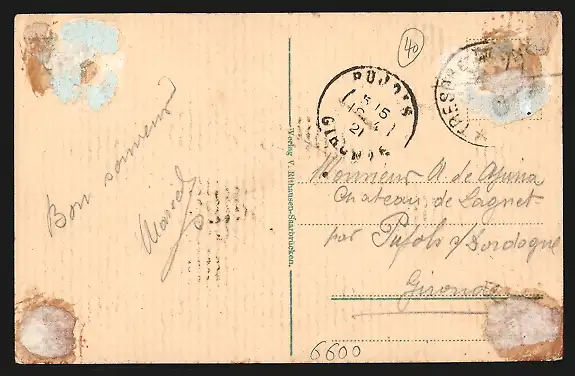 Bon souvenir
Marcel
Verlag V. Rithausen-Saarbrücken.
40
PUJOLS
5 15
21
GIRONDE
TRESOR
Monsieur A. de
Chateau de Lagnet
par Pujols s/ Dordogne
Gironde
6600